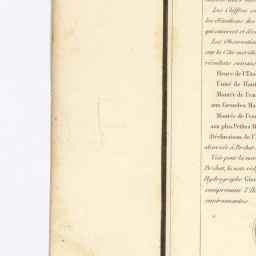 Les Chiffres
les étendues des
qui couvrent et dé
Les Observations
sur la Côte méridi
résultats suivans
Heure de l'Eta
Unité de Haut
Montée de l'eau
aux grandes Ma
Montée de l'eau
aux plus Petites M
Déclinaison de l'
observée à Bréhat
Voir pour la navi
Bréhat, la note rédi
Hydrographe Gén
comprenant l'Ile
environnantes.